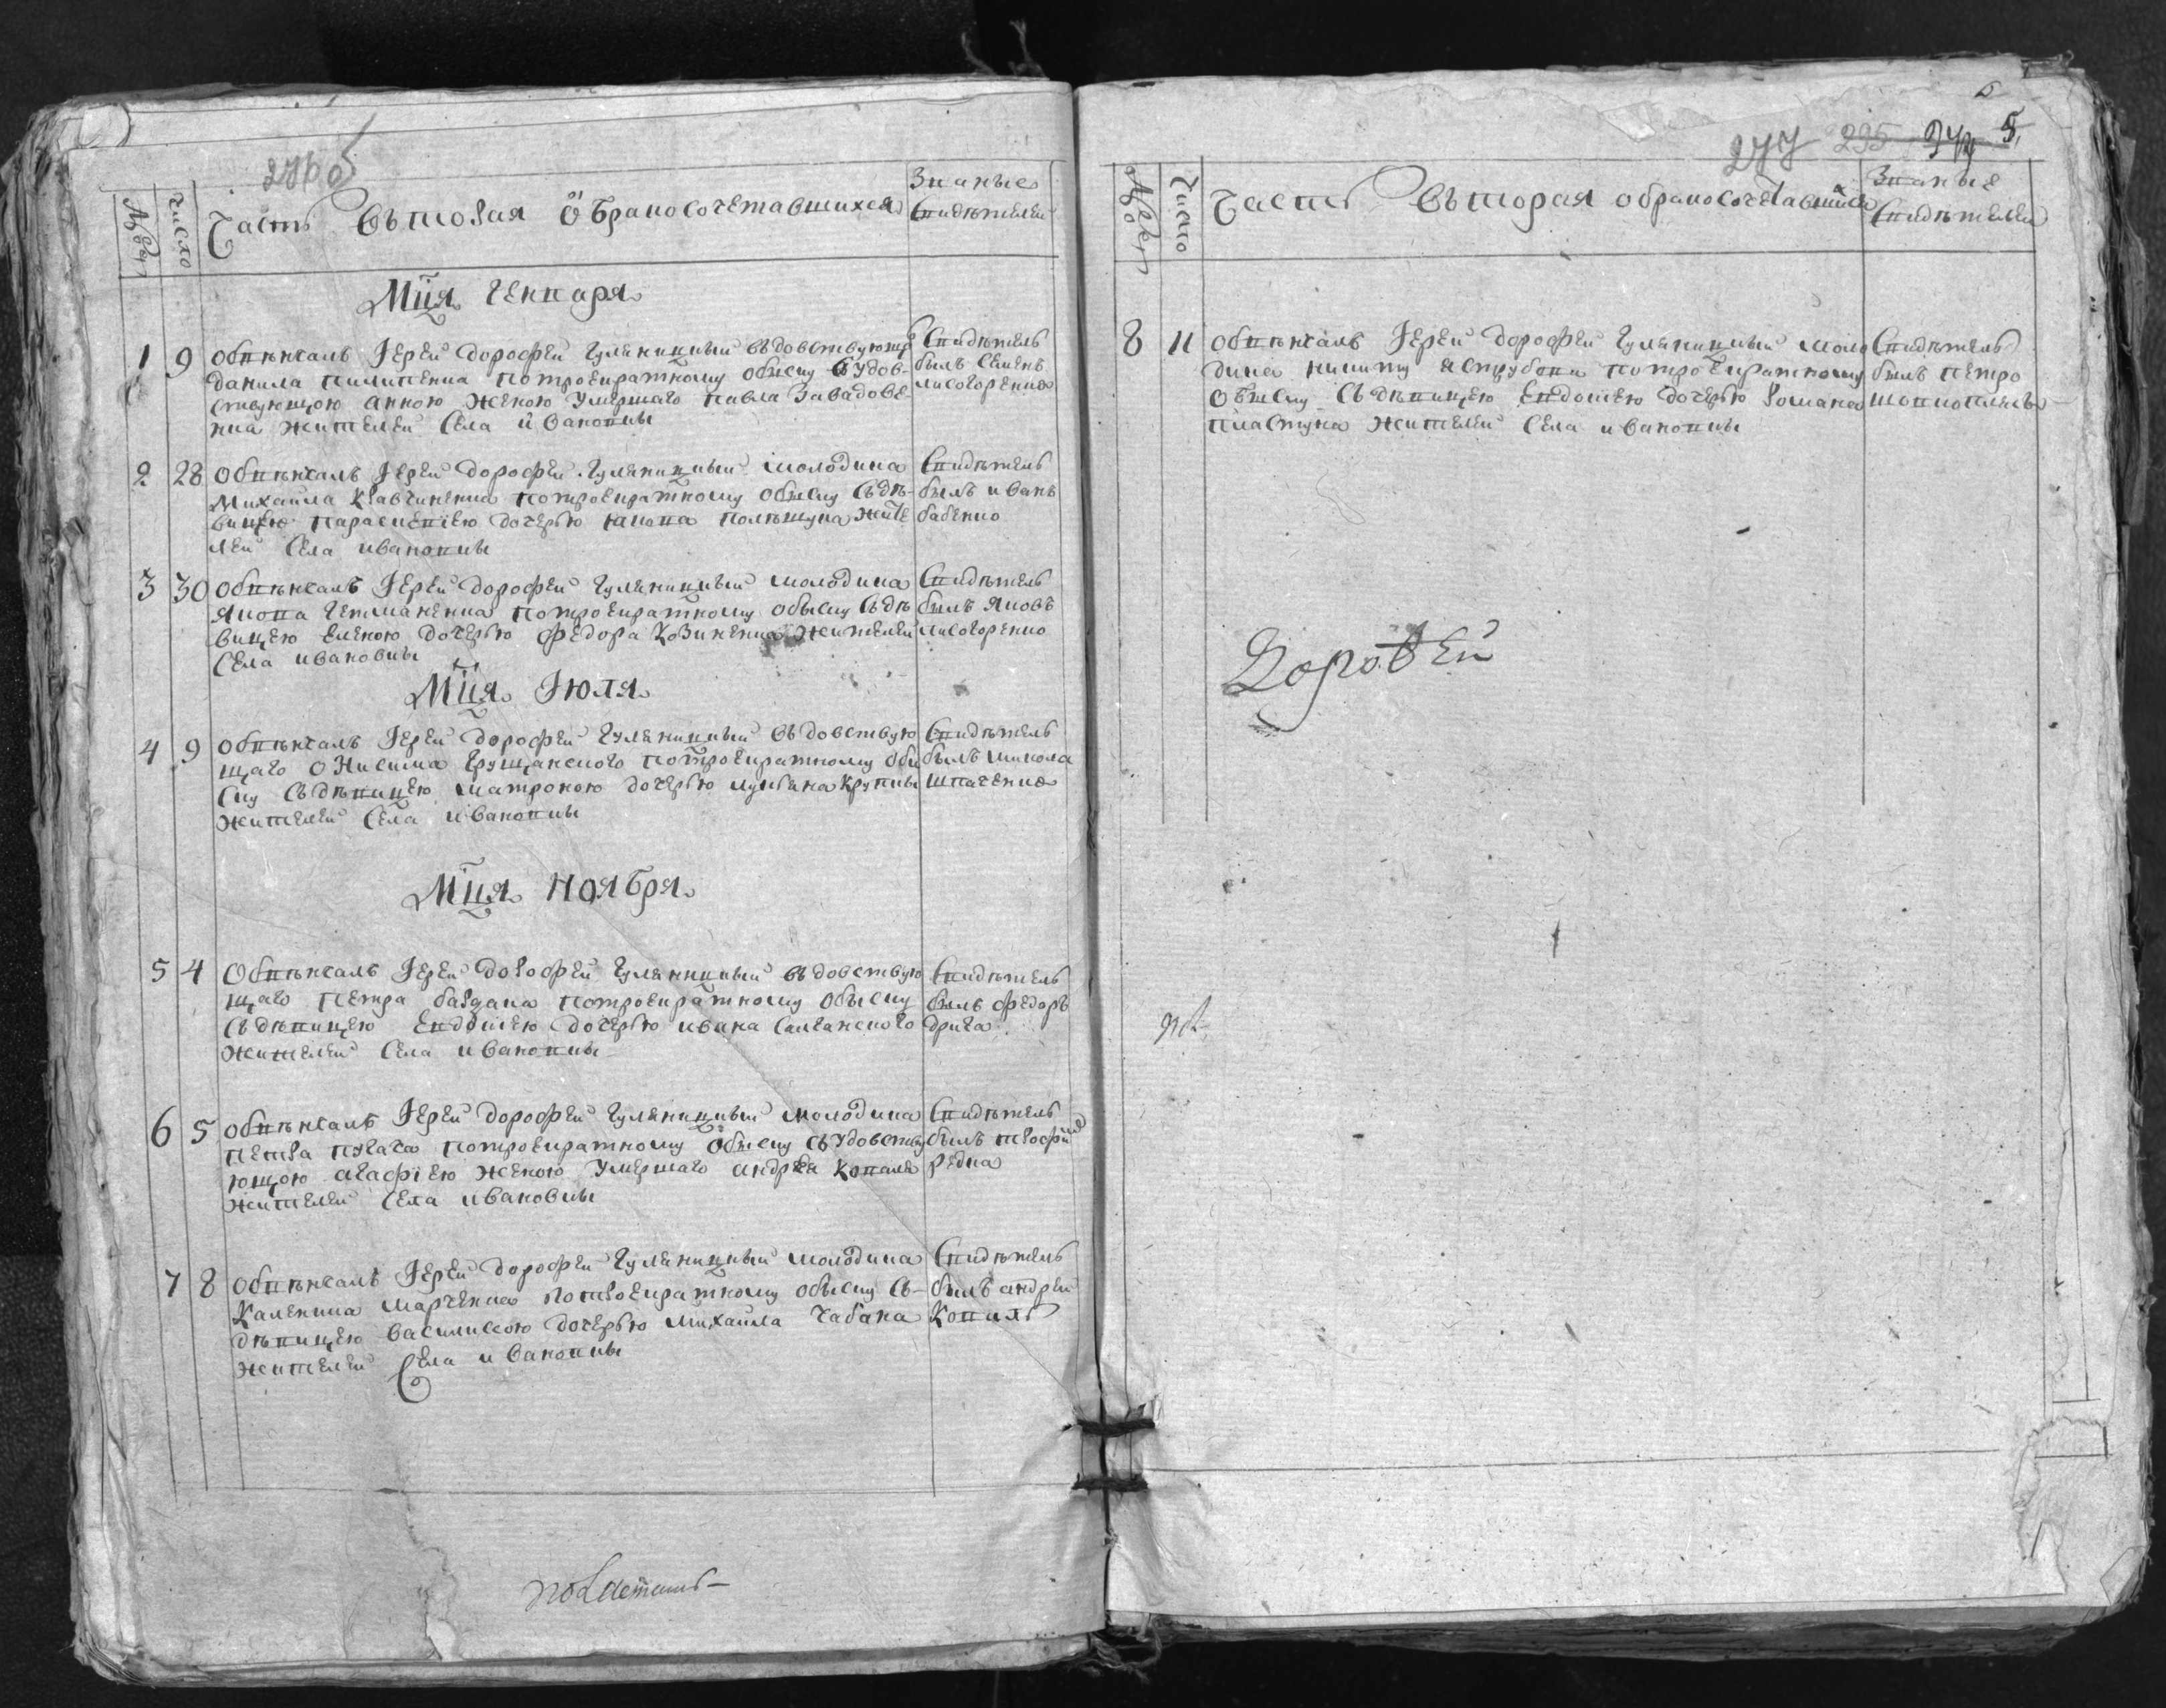 276 об
Число
Часть Въторая о Бракосочетавшихся
Званые Свидѣтели
Мця Генваря
1 9 Обвѣнчалъ Іерей Дорофей Гуляницкый въдовствующ
Данила Пилипенка потроекратному обыску съ удов-
ствующою Анною женою умершаго Павла Завадове-
нка жителей села Ивановкы
Свидѣтель
былъ Семенъ
Лисогоренко
2 28 Обвѣнчалъ Іерей Дорофей Гуляницкый молодика
Михайла Кравчиненка потроекратному обыску съдѣ-
вицею Параскевіею дочерью Якова Полѣщука жите
лей села Ивановкы
Свидѣтель
былъ Иванъ
Бабенко
3 30 Обвѣнчалъ Іерей Дорофей Гуляницкый молодика
Якова Гетманенка потроекратному обыску съдѣ
вицею Еленою дочерью Федора Козиненка жителей
села Ивановкы
Свидѣтель
былъ Яковъ
Лисогоренко
Мця Іюля
4 9 Обвѣнчалъ Іерей Дорофей Гуляницкый въдовствую
щаго Онисима Грущанского потроекратному обы
ску съдѣвицею Матроною дочерью Лукъяна Крупкы
жителей села Ивановкы
Свидѣтель
былъ Микола
Шпаченко
Мця Ноября
5 4 Обвѣнчалъ Іерей Дорофей Гуляницкый въдовствую
щаго Петра Баздана потроекратному обыску
съдѣвицею Евдокіею дочерью Ивана Салганского
жителей села Ивановкы
Свидѣтель
былъ Федоръ
Дрига
6 5 Обвѣнчалъ Іерей Дорофей Гуляницкый молодика
Петра Пугача потроекратному обыску съ удовству
ющою Агафіею женою умершаго Андрея Коваля
жителей села Ивановкы
Свидѣтель
былъ
Редка
7 8 Обвѣнчалъ Іерей Дорофей Гуляницкый молодика
Каленика Марченка потроекратному обыску съ-
дѣвицею Василисою дочерью Михайла Чабана
жителей села Ивановкы
Свидѣтель
былъ Андрей
Ковиль
277 295 5
Число
Часть Въторая о бракосочетавшихся
Званые
Свидѣтели
8 11 Обвѣнчалъ Іерей Дорофей Гуляницкый моло
дика Никиту Яструбови потроекратному
обыску съдѣвицею Евдокіею дочерью Романа
Пластуна жителей села Ивановкы
Свидѣтель
былъ Петро
Шовкоплясъ
Дорофей